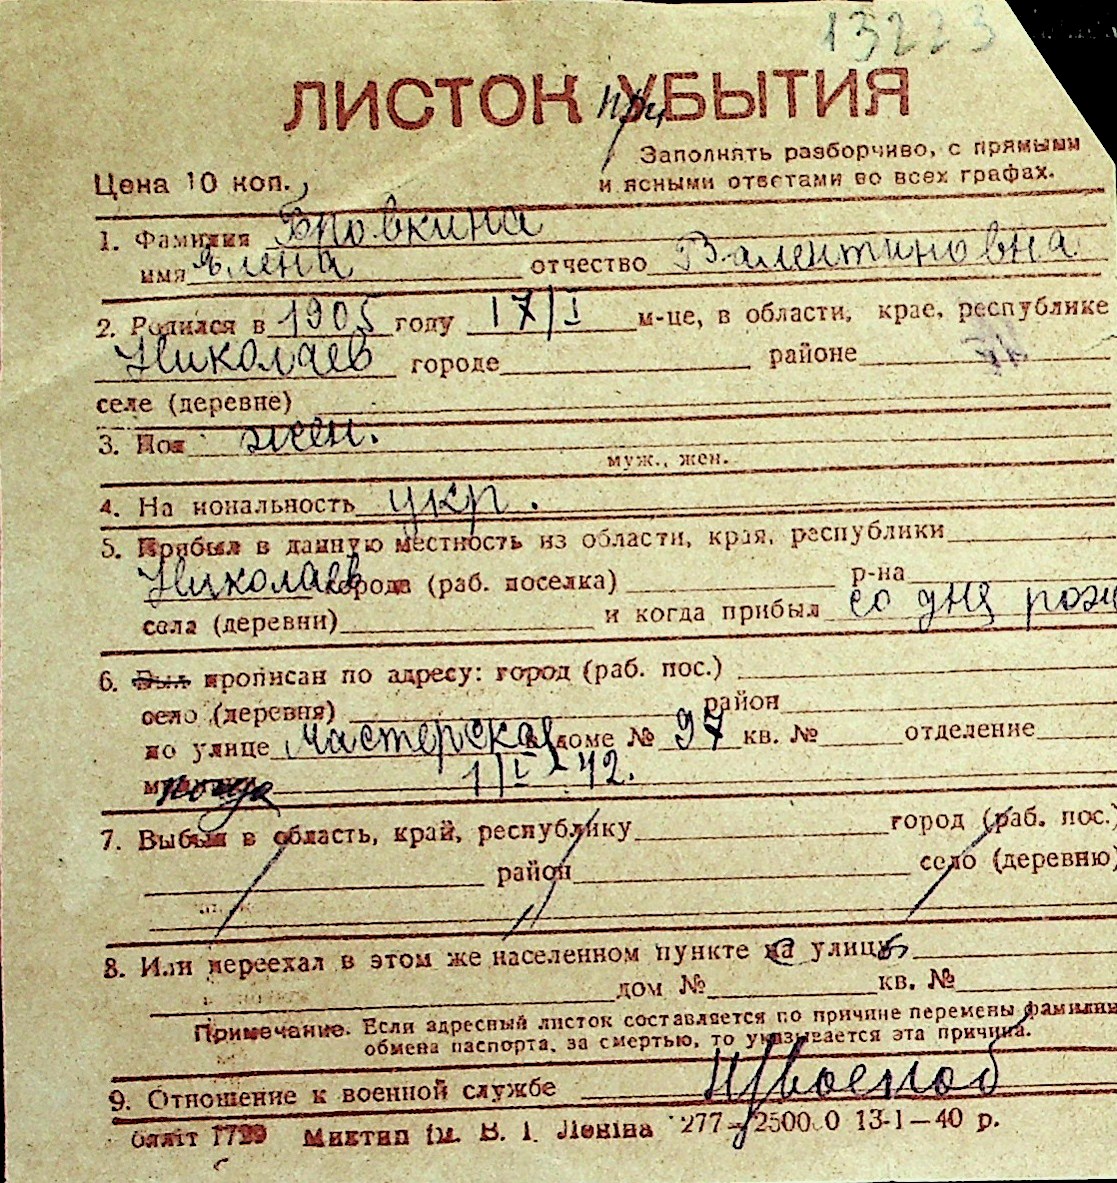 13223
ЛИСТОК УБЫТИЯ
при
Заполнять разборчиво, с прямыми
и ясными ответами во всех графах.
Цена 10 коп.
1. Фамилия
имя Елена отчество Валентиновна
2. Родился в 1905 году 17/I м-це, в области, крае, республике
Николаев городе районе
селе (деревне)
3. Пол жен.
муж., жен.
4. Национальность укр.
5. Прибыл в данную местность из области, края, республики
Николаев города (раб. поселка) р-на
села (деревни) и когда прибыл со дня рож
6. Был прописан по адресу: город (раб. пос.)
село (деревня) район
по улице Мастерская в доме № 97 кв. № отделение
когда 1/I-42.
7. Выбыл в область, край, республику город (раб. пос.)
район село (деревню)
8. Или переехал в этом же населенном пункте с улицы
дом № кв. №
Примечание. Если адресный листок составляется по причине перемены фамилии
обмена паспорта, за смертью, то указывается эта причина.
9. Отношение к военной службе Н/военоб
1799 ім. В. І. Леніна 277—25000 13-I—40 р.